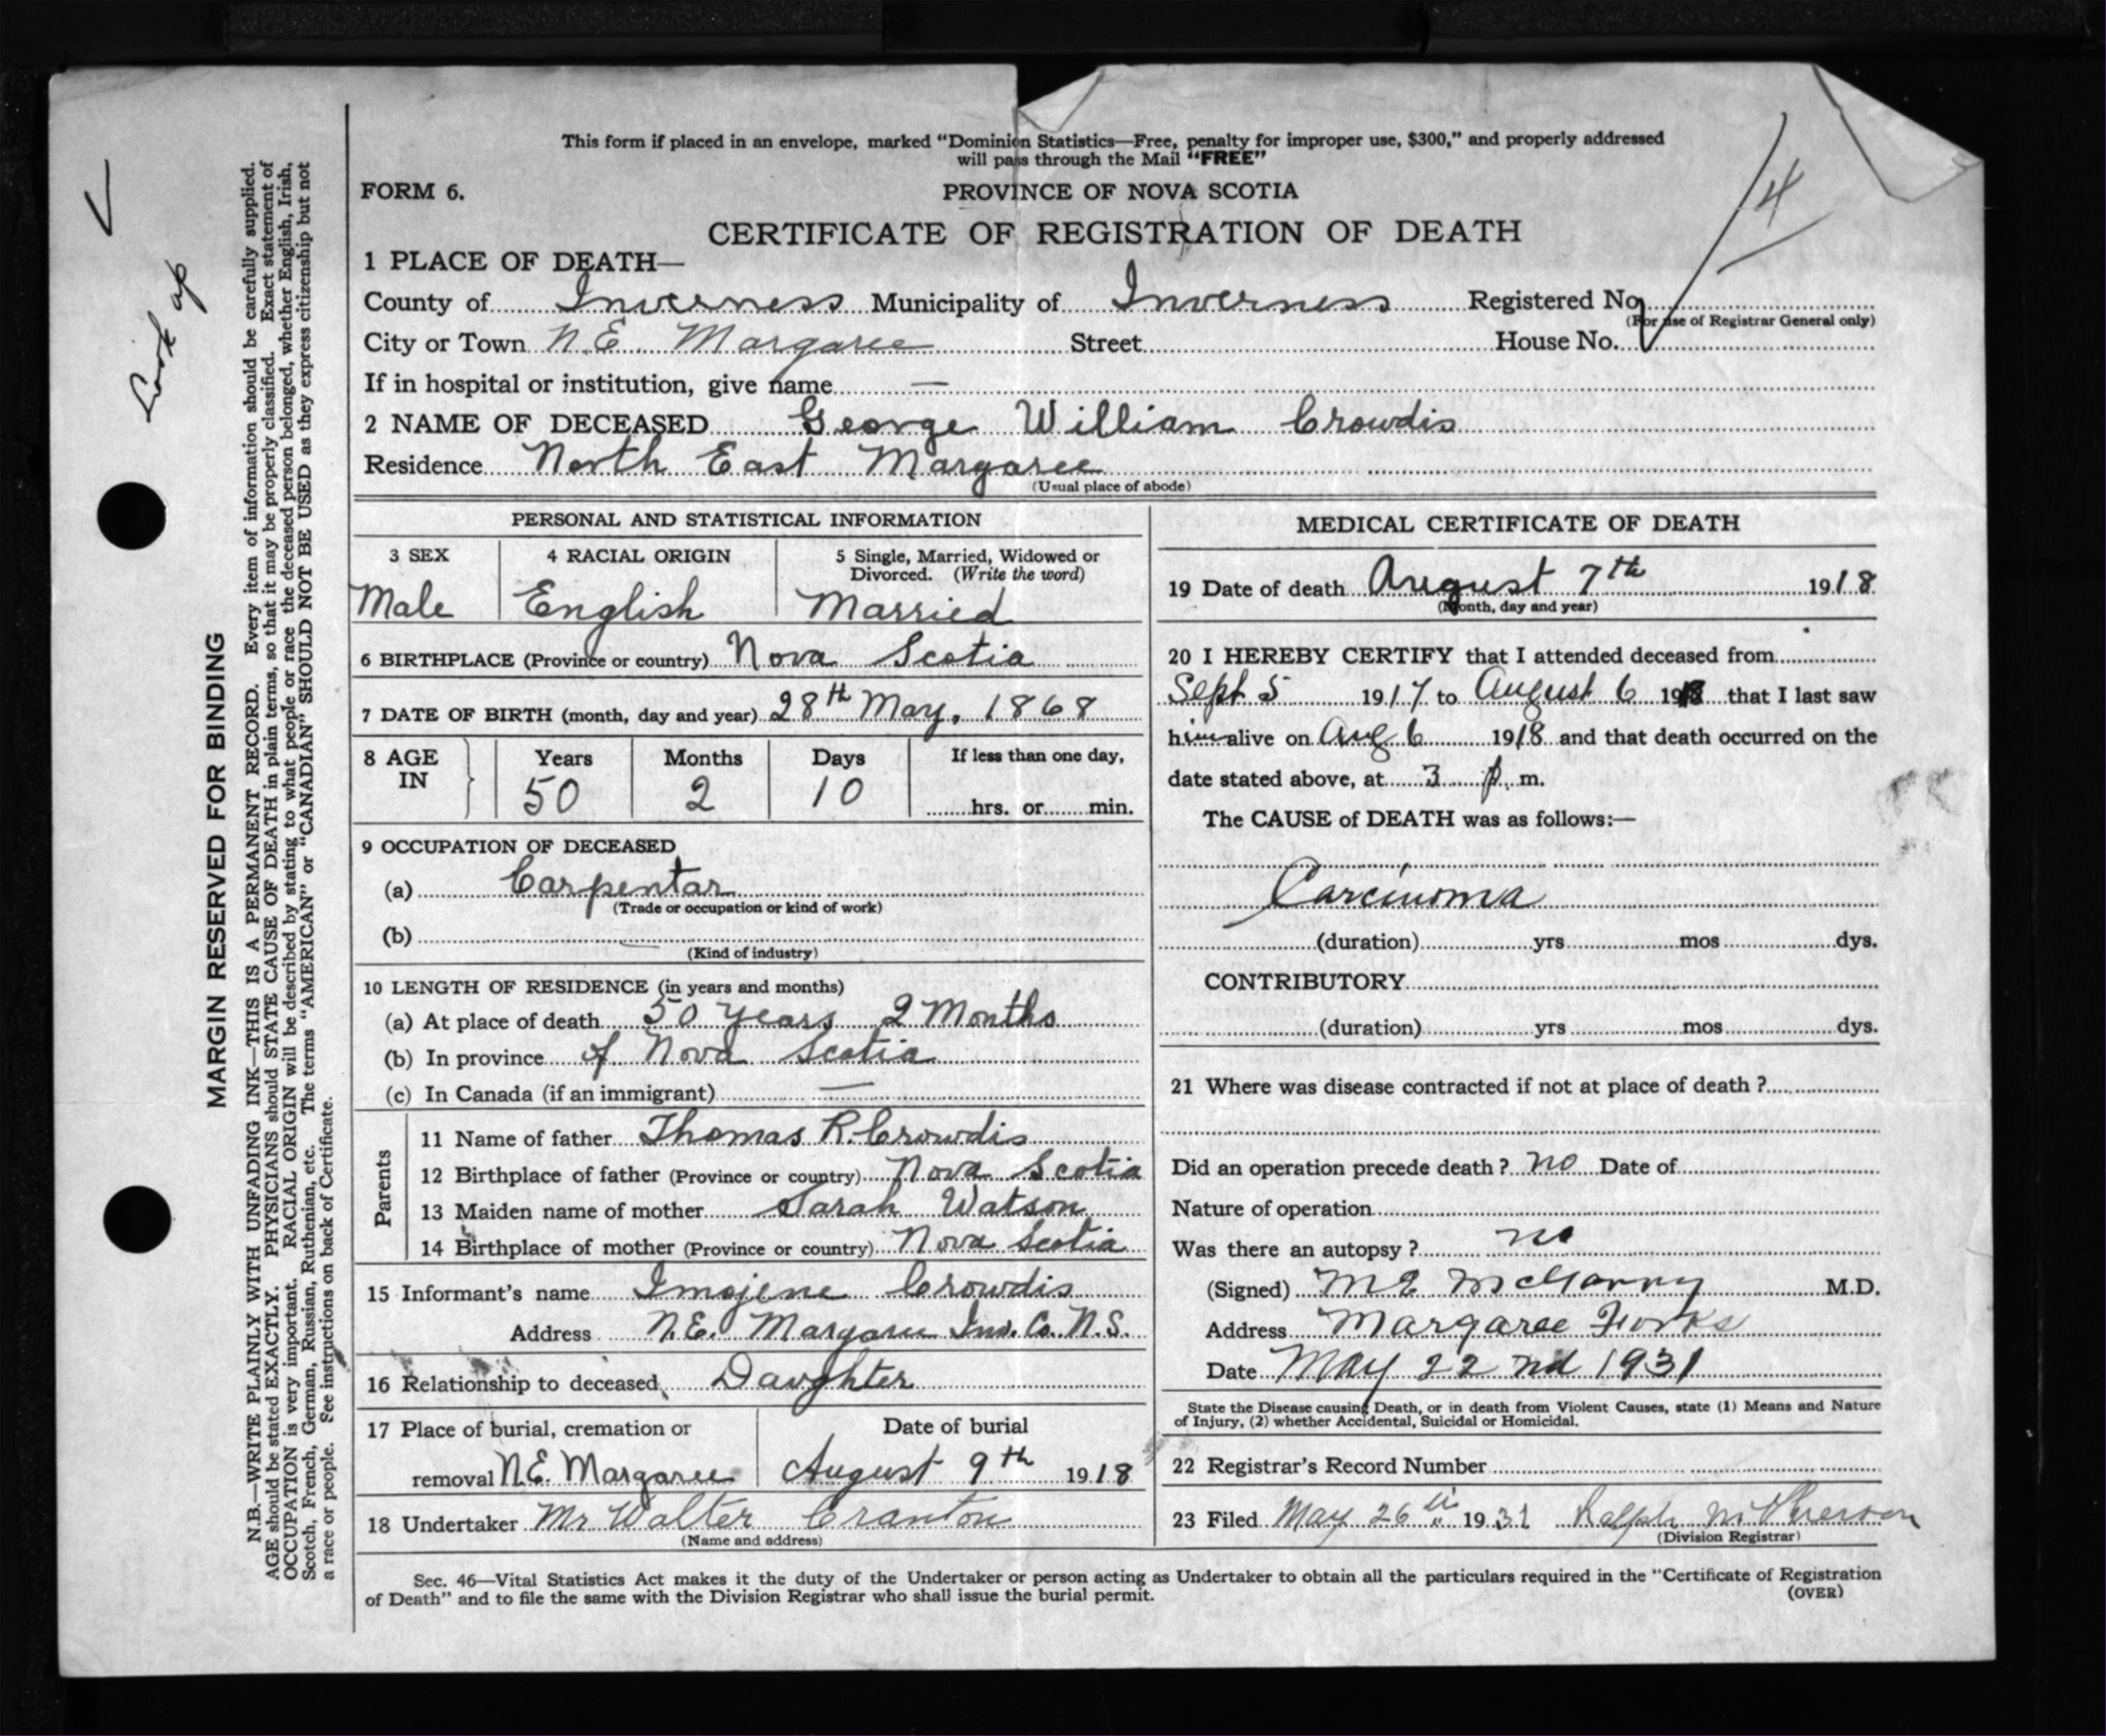 This form if placed in an envelope, marked “Dominion Statistics—Free, penalty for improper use, $300,” and properly addressed
will pass through the Mail “FREE”
FORM 6.
PROVINCE OF NOVA SCOTIA
14
CERTIFICATE OF REGISTRATION OF DEATH
1 PLACE OF DEATH—
County of Inverness Municipality of Inverness Registered No.
(For use of Registrar General only)
City or Town N.E. Margaree Street House No.
If in hospital or institution, give name —
2 NAME OF DECEASED George William Crowdis
Residence North East Margaree
(Usual place of abode)
PERSONAL AND STATISTICAL INFORMATION
3 SEX 4 RACIAL ORIGIN 5 Single, Married, Widowed or
Divorced. (Write the word)
Male English Married
6 BIRTHPLACE (Province or country) Nova Scotia
7 DATE OF BIRTH (month, day and year) 28th May, 1868
8 AGE IN Years Months Days If less than one day,
50 2 10 hrs. or min.
9 OCCUPATION OF DECEASED
(a) Carpentar
(Trade or occupation or kind of work)
(b)
(Kind of industry)
10 LENGTH OF RESIDENCE (in years and months)
(a) At place of death 50 years 2 Months
(b) In province of Nova Scotia
(c) In Canada (if an immigrant) —
Parents
11 Name of father Thomas R. Crowdis
12 Birthplace of father (Province or country) Nova Scotia
13 Maiden name of mother Sarah Watson
14 Birthplace of mother (Province or country) Nova Scotia
15 Informant's name Imojene Crowdis
Address N.E. Margaree Inv. Co. N.S.
16 Relationship to deceased Daughter
17 Place of burial, cremation or Date of burial
removal N.E. Margaree August 9th 1918
18 Undertaker Mr Walter Cranton
(Name and address)
MEDICAL CERTIFICATE OF DEATH
19 Date of death August 7th 1918
(Month, day and year)
20 I HEREBY CERTIFY that I attended deceased from
Sept 5 1917 to August 6 1918 that I last saw
him alive on Aug 6 1918 and that death occurred on the
date stated above, at 3 p. m.
The CAUSE of DEATH was as follows:—
Carcinoma
(duration) yrs mos dys.
CONTRIBUTORY
(duration) yrs mos dys.
21 Where was disease contracted if not at place of death ?
Did an operation precede death ? no Date of
Nature of operation
Was there an autopsy ? no
(Signed) M E McGarry M.D.
Address Margaree Forks
Date May 22nd 1931
State the Disease causing Death, or in death from Violent Causes, state (1) Means and Nature
of Injury, (2) whether Accidental, Suicidal or Homicidal.
22 Registrar's Record Number
23 Filed May 26th 1931 Ralph McPherson
(Division Registrar)
Sec. 46—Vital Statistics Act makes it the duty of the Undertaker or person acting as Undertaker to obtain all the particulars required in the “Certificate of Registration
of Death” and to file the same with the Division Registrar who shall issue the burial permit.
(OVER)
Look up
MARGIN RESERVED FOR BINDING
N.B.—WRITE PLAINLY WITH UNFADING INK—THIS IS A PERMANENT RECORD. Every item of information should be carefully supplied.
AGE should be stated EXACTLY. PHYSICIANS should STATE CAUSE OF DEATH in plain terms, so that it may be properly classified. Exact statement of
OCCUPATION is very important. RACIAL ORIGIN will be described by stating to what people or race the deceased person belonged, whether English, Irish,
Scotch, French, German, Russian, Ruthenian, etc. The terms “AMERICAN” or “CANADIAN” SHOULD NOT BE USED as they express citizenship but not
a race or people. See instructions on back of Certificate.